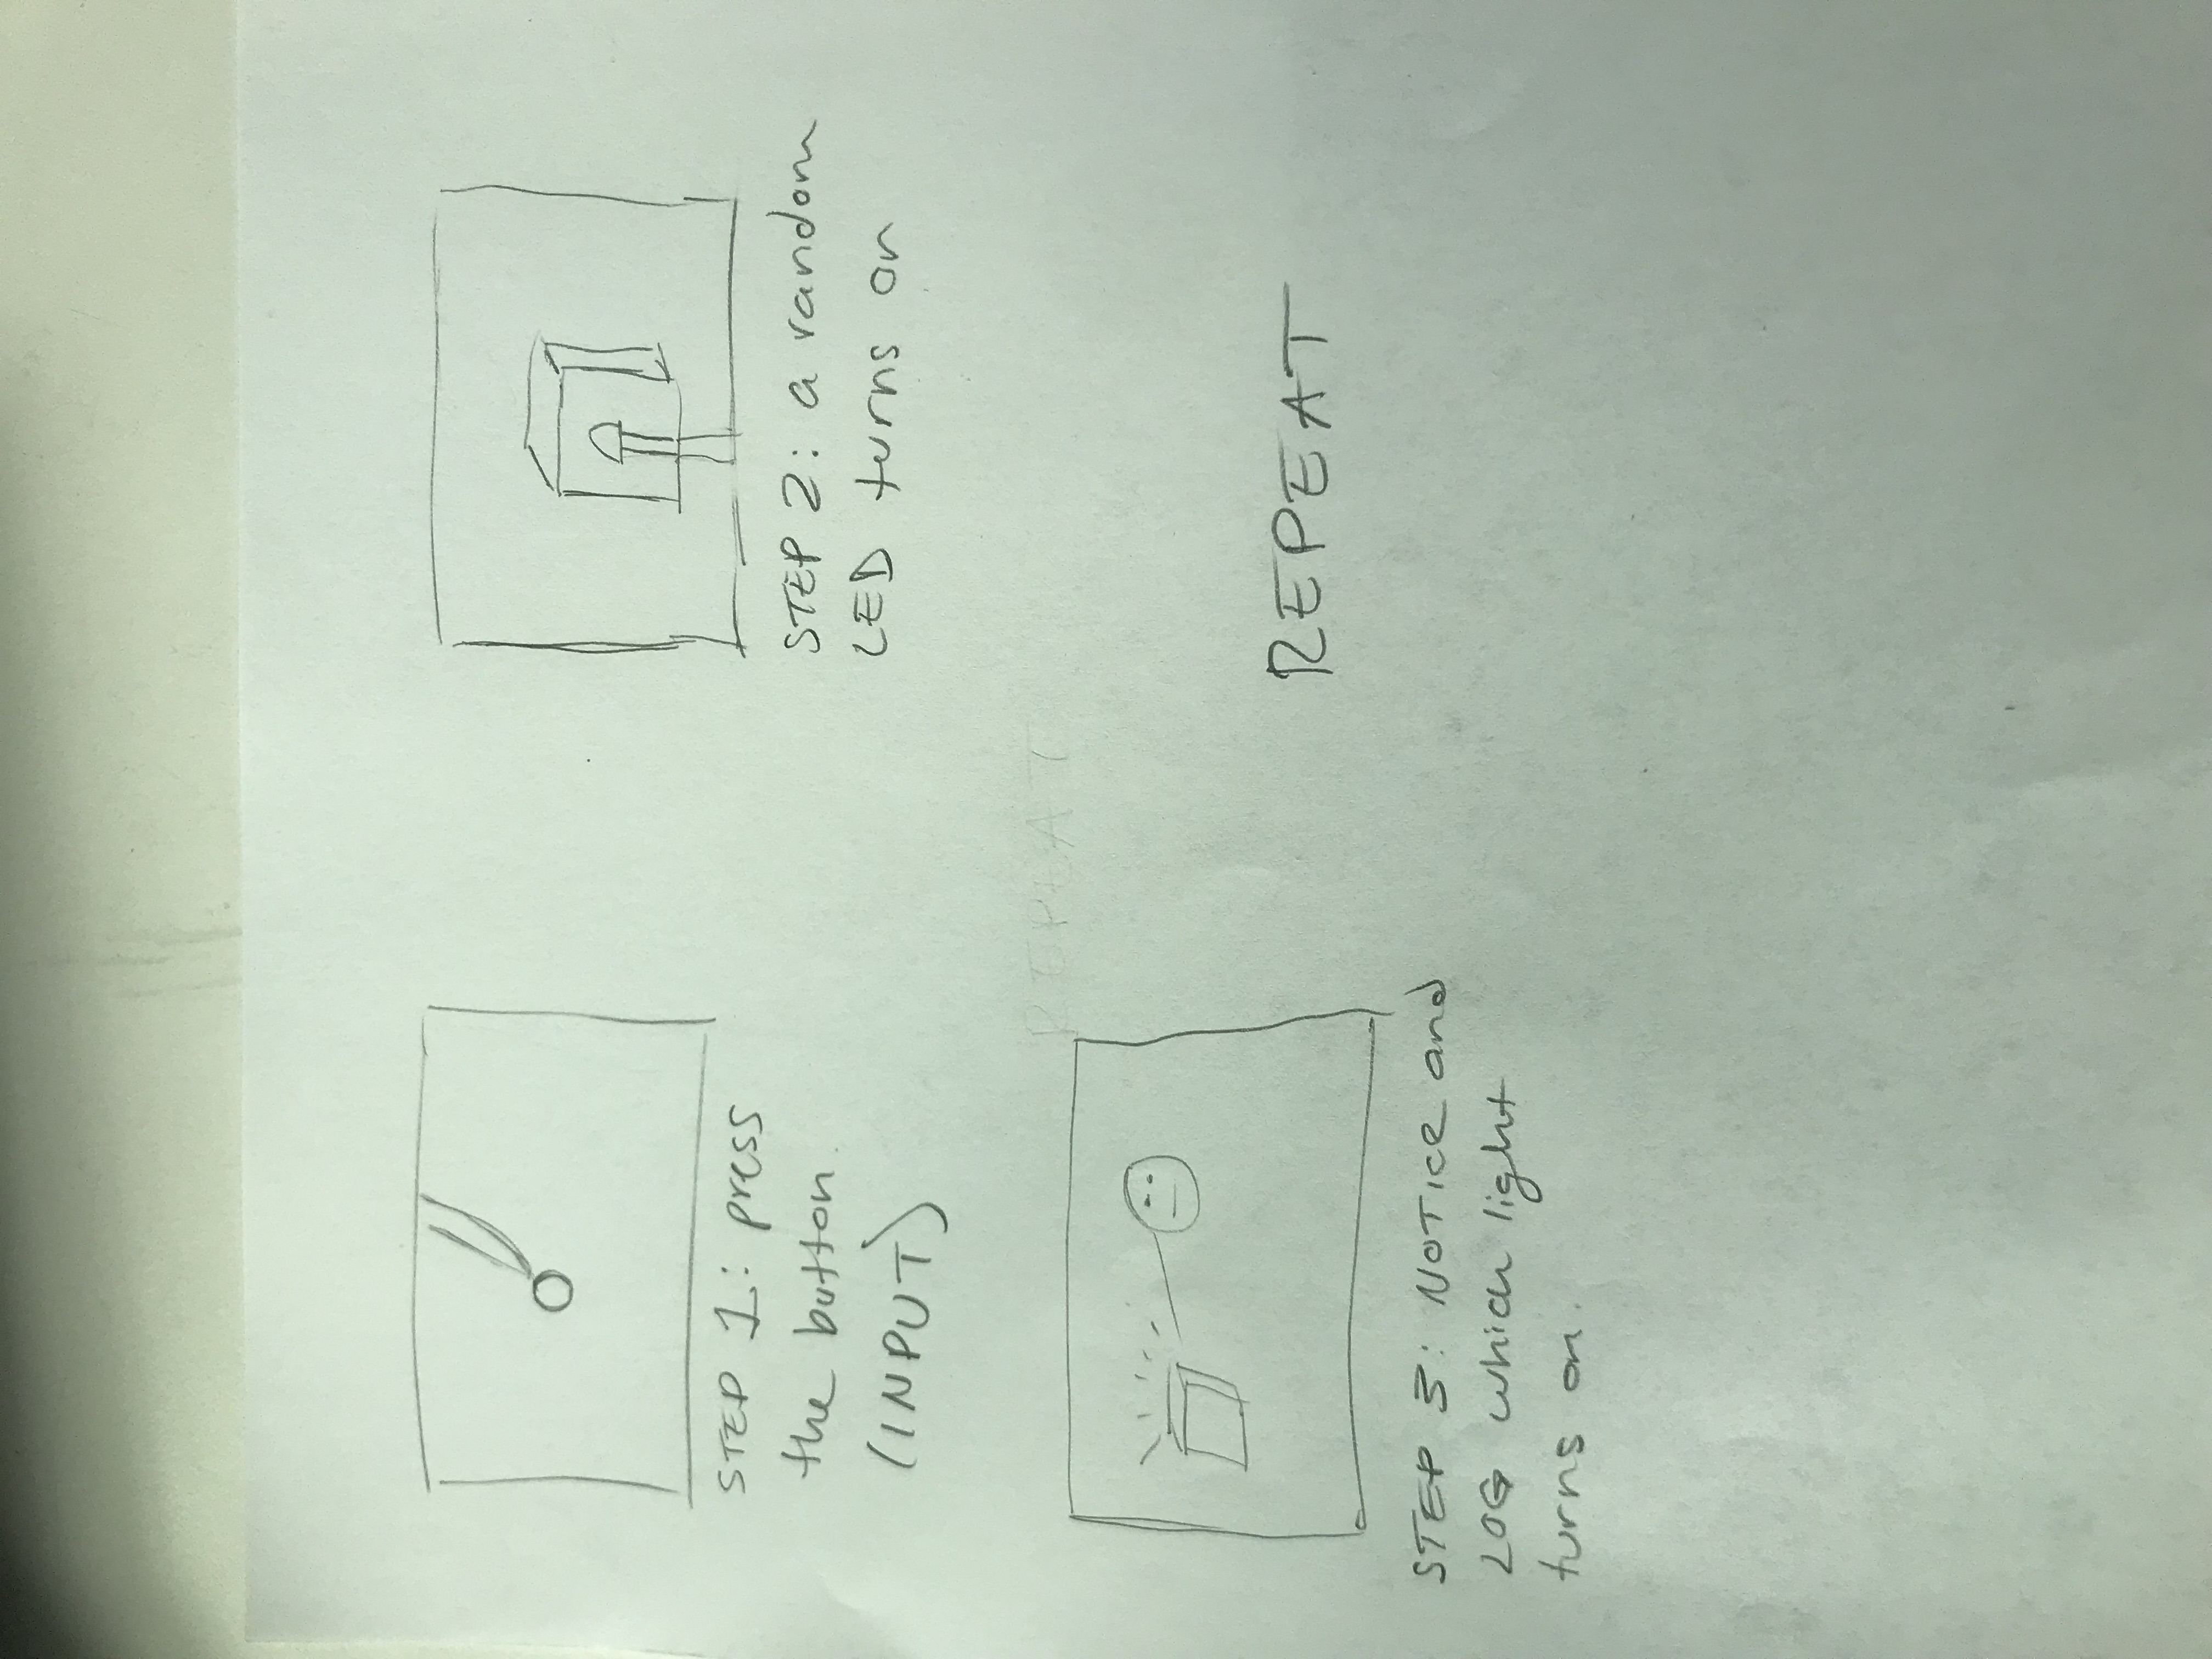 STEP 1: press
the button.
(INPUT)
STEP 2: a random
LED turns on
REPEAT
STEP 3: NOTICE and
LOG which light
turns on.
REPEAT